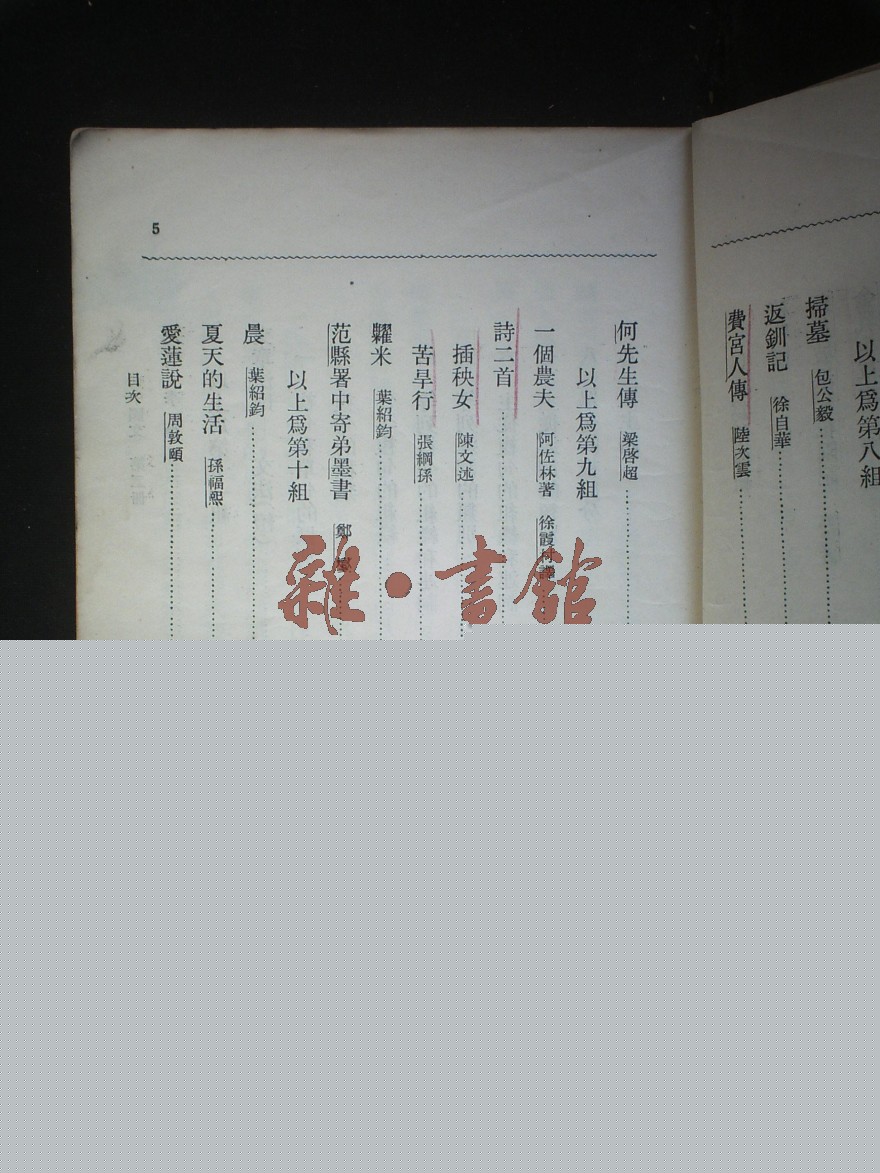 以上爲第八組
掃墓 包公毅
返釧記 徐自華
費宮人傳 陸次雲
5
何先生傳 梁啓超
以上爲第九組
一個農夫 阿佐林著 徐霞村譯
詩二首
插秧女 陳文述
苦旱行 張綱孫
糶米 葉紹鈞
范縣署中寄弟墨書 鄭燮
以上爲第十組
晨 葉紹鈞
夏天的生活 孫福熙
愛蓮說 周敦頤
目次
雜·書館